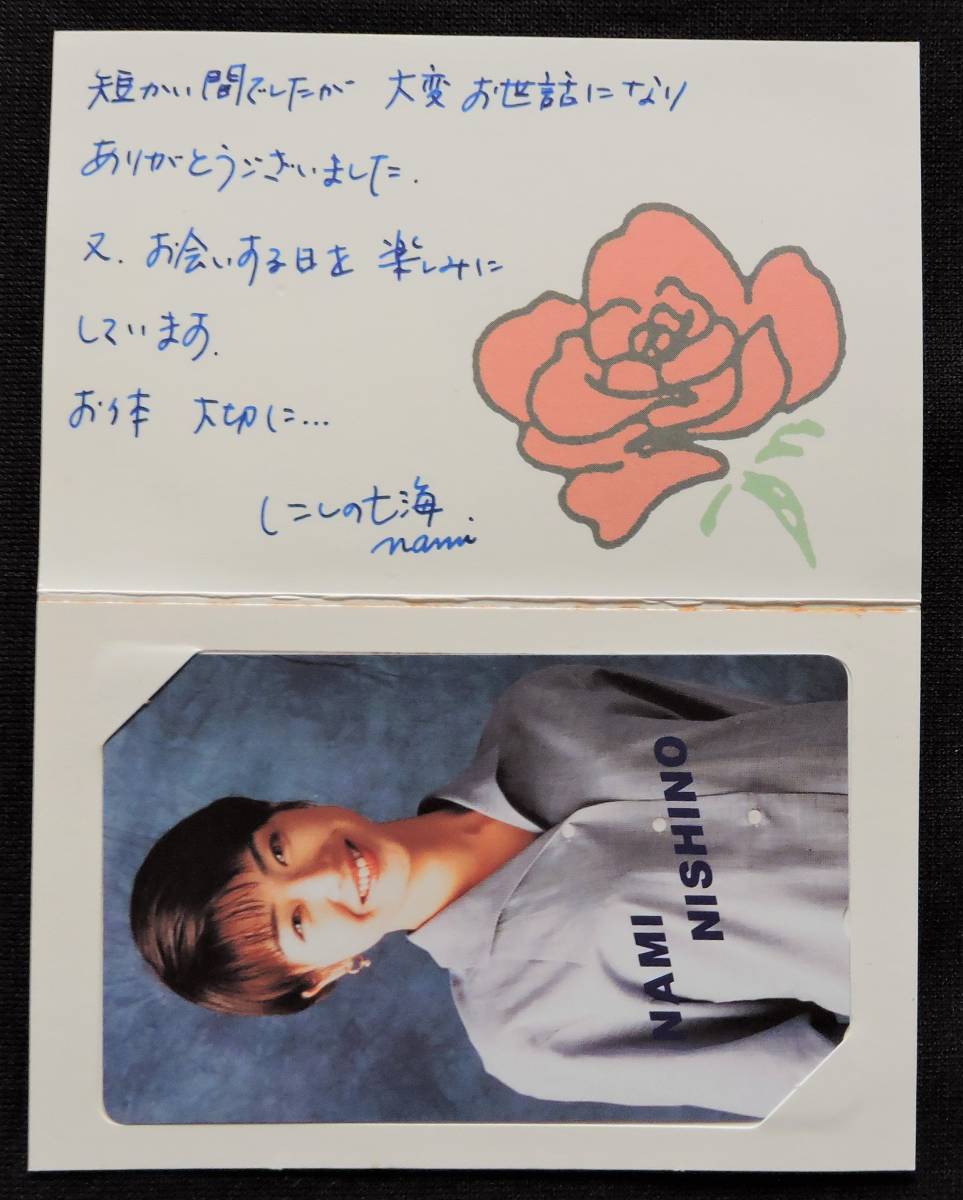 短かい間でしたが 大変お世話になり
ありがとうございました.
又. お会いする日を 楽しみに
しています.
お体 大切に...
にしの七海
nami.
NAMI
NISHINO